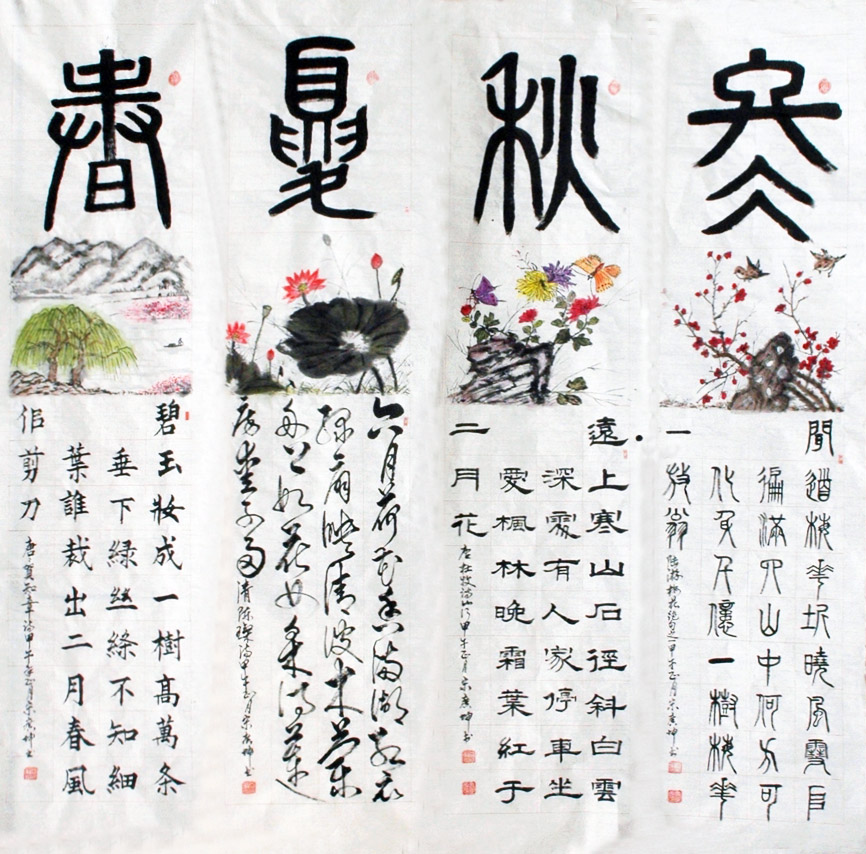 春
碧玉妝成一樹高萬条
垂下緑丝絛不知細
葉誰裁出二月春風
佀剪刀
唐賀知章诗甲午年正月宋广坤书
夏
六月荷花香满湖红衣
绿扇映清波木兰
舟上如花女采得莲
房爱子多
清陈璨诗甲午正月宋广坤书
秋
遠上寒山石徑斜白雲
深處有人家停車坐
愛楓林晚霜葉紅于
二月花
唐杜牧诗山行甲午正月宋广坤书
冬
聞道梅華坼曉風雪𠂤
徧滿四山中何方可
化身千億一樹梅華
一放翁
陆游梅花绝句之一甲午正月宋广坤书